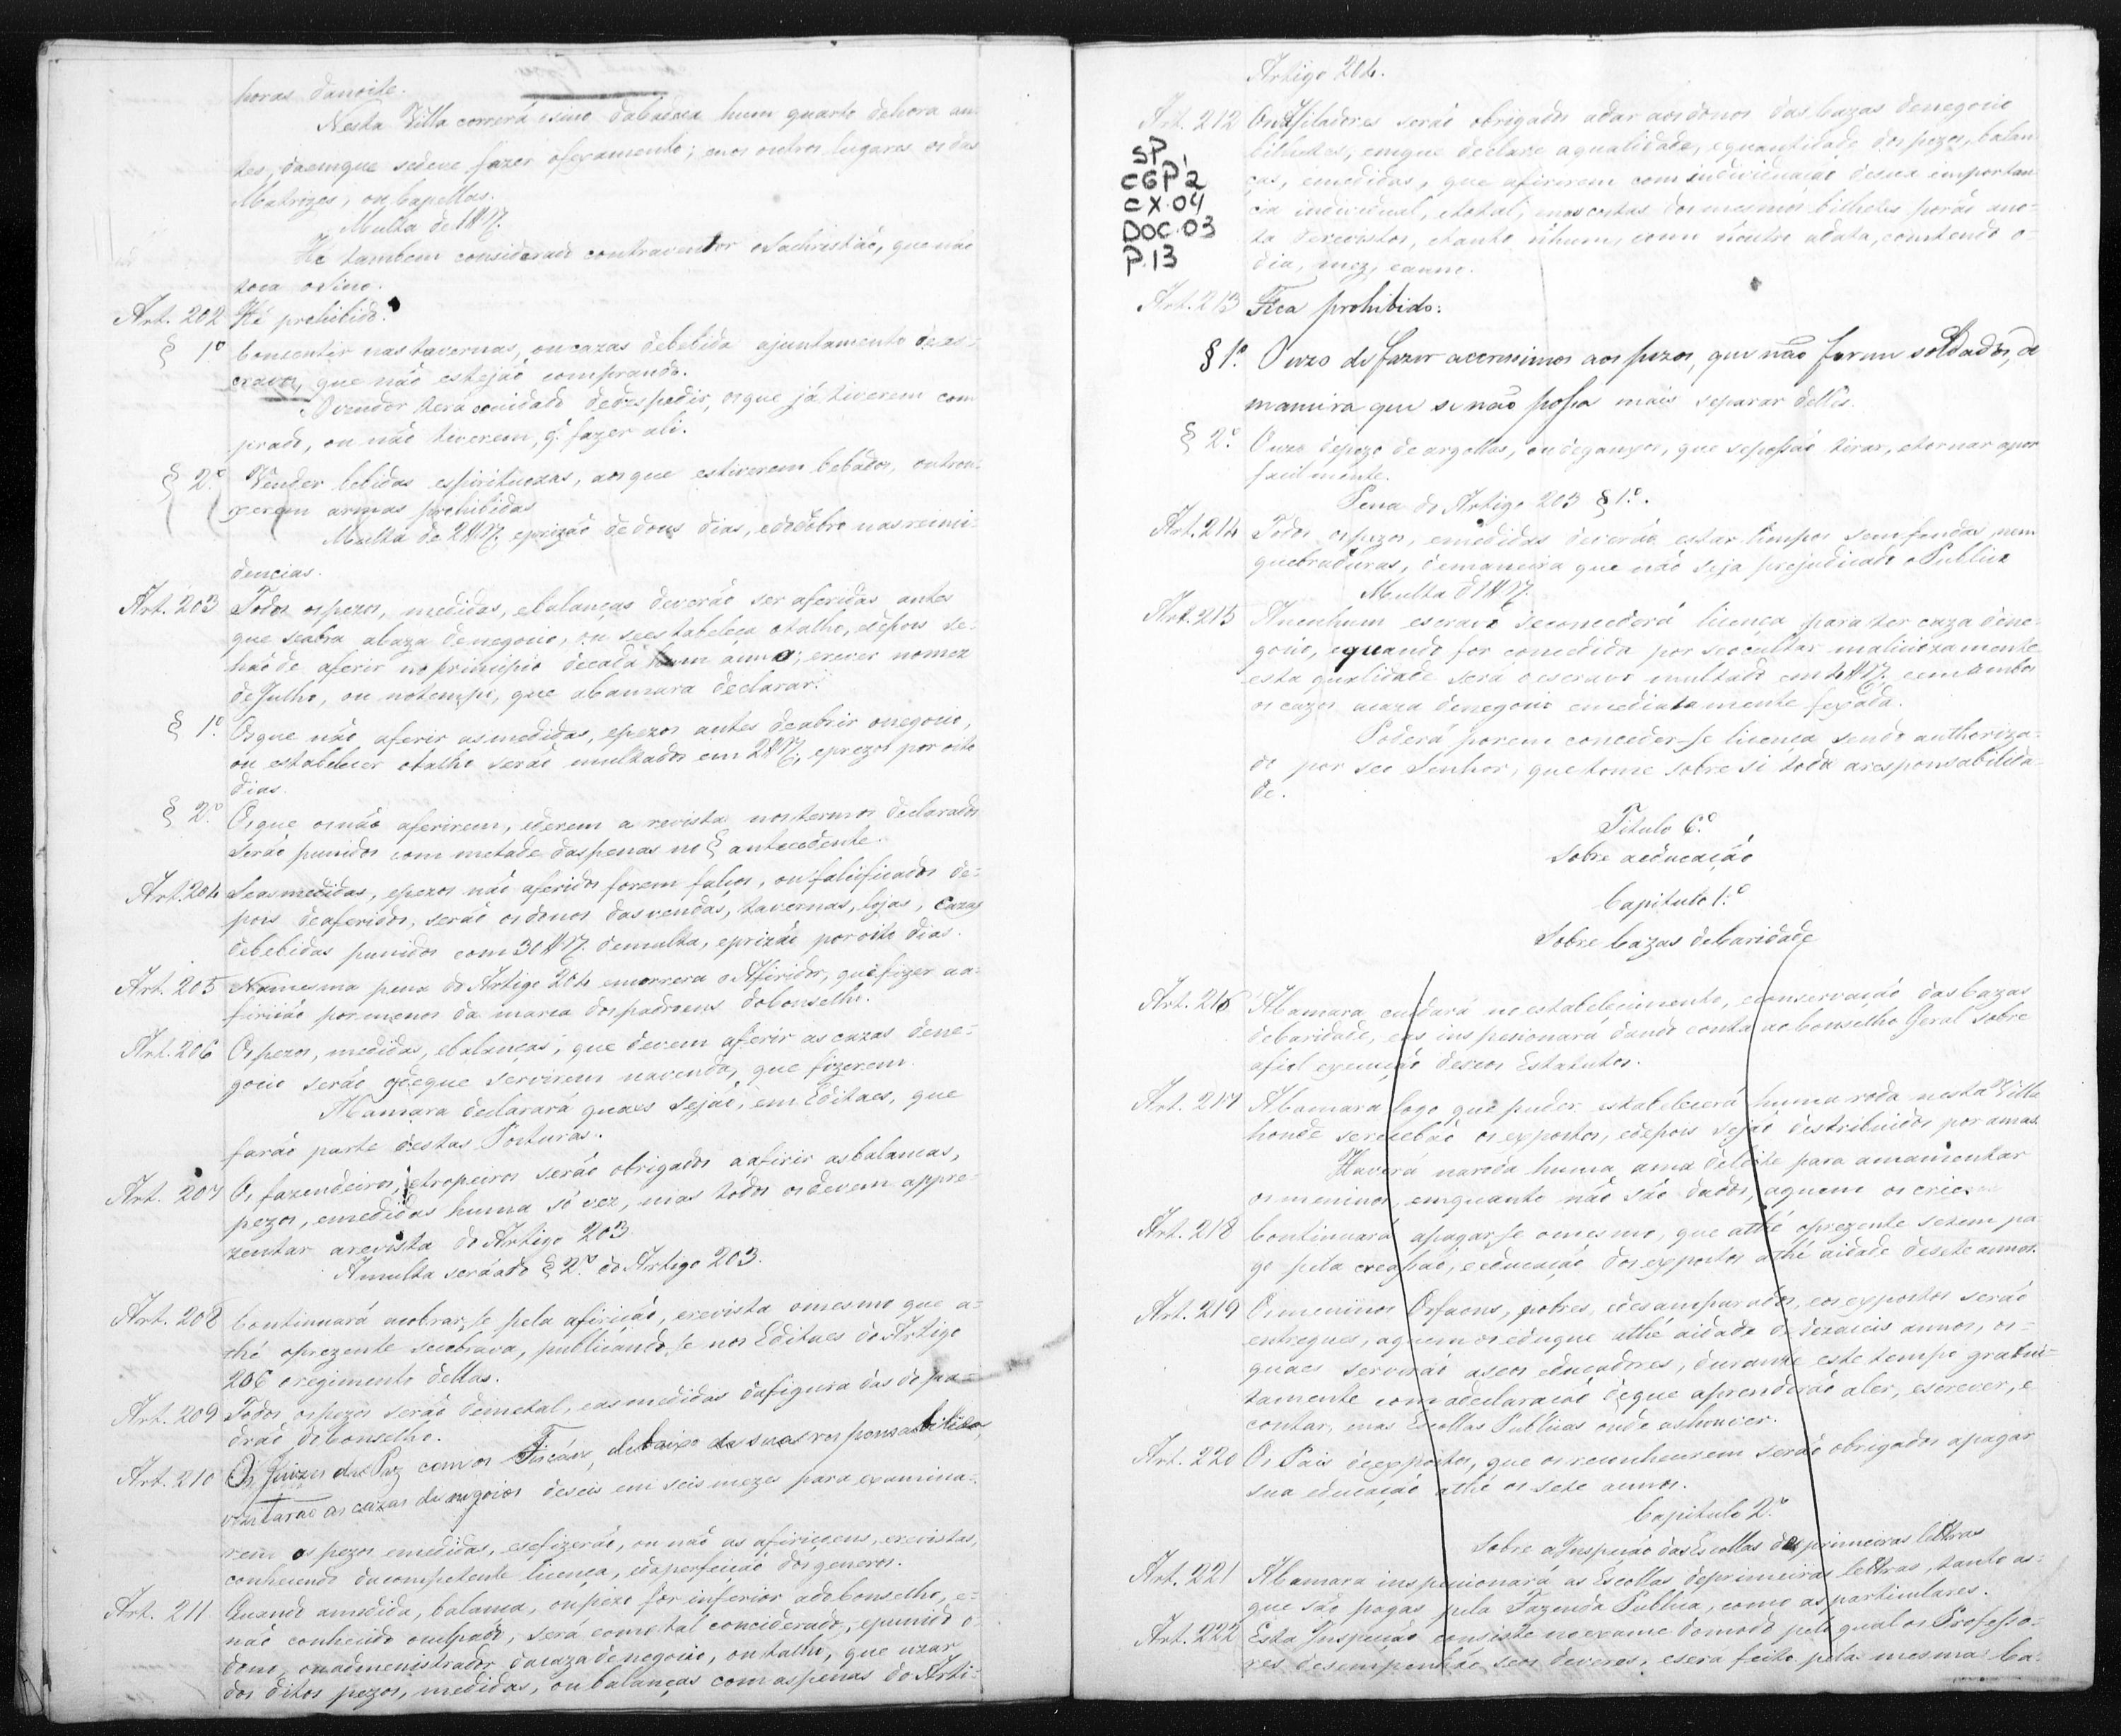 horas danoite.
Nesta Villa correrá osino dabaCaza hum quarto dehora an-
tes, daemque sedeve fazer ofexamento; enos outros lugares os das
Matrizes, ou Capellas.
Multa de 1$
He tambem considerado contraventor o Sachristiaó, que naó
toca osino.
Art. 202 Hé prohibido:
§ 1º Consentir nas tavernas, oucazas debebida ajuntamento dees-
cravos, que naó estejaó comprando.
O vendor terá cuidado dedespedir, osque já tiverem com
prado, ou naó tiverem, q. fazer ali.
§ 2º Vender bebidas espirituozas, aosque estiverem bebados, outrou-
xerem armas prohibidas
Multa de 2$ eprizaó dedous dias, edodobro nas reinci-
dencias.
Art. 203 Todos ospezos, medidas, ebalanças deveraó ser aferidas antes
que seabra aCaza denegocio, ou seestabeleça otalho, edepois se-
haóde aferir noprincipio decada hum anno; erever nomez
deJulho, ou notempo, que aCamara declarar.
§ 1º Osque naó aferir asmedidas, epezos antes deabrir onegocio,
ou estabelecer otalho seraó multados em 2$, eprezos por oito
dias.
§ 2º Osque osnaó aferirem, ederem a revista nostermos declarados
seraó punidos com metade daspenas no § antecedente.
Art. 204 Seasmedidas, epezos naó aferidos forem falsos, oufalsificados de-
pois deaferidos, seraó osdonos dasvendas, tavernas, lojas, Cazas
debebidas punidos com 30$ demulta, eprizaó poroito dias.
Art. 205 Namesma pena do Artigo 204 encorrera o Afiridor, quefizer aa-
firiçaó pormenos da marca dospadroens doConselho.
Art. 206 Ospezos, medidas, ebalanças, que devem aferir as cazas dene-
gocio seraó osdeque servirem navenda, que fizerem.
ACamara declarará quaes sejaó, em Editaes, que
faraó parte destas Posturas.
Art. 207 Os fazendeiros, etropeiros seraó obrigados aafirir asbalancas,
pezos, emedidas huma só vez, mas todos osdevem appre-
zentar arevista do Artigo 203
Amulta seráado § 2º do Artigo 203.
Art. 208 Continuará acobrar-se pela afiriçaó, erevista omesmo que a-
thé oprezente secobrava, publicando-se nos Editaes do Artigo
206 oregimento dellas.
Art. 209 Todos ospezos seraó demetal, easmedidas dafigura das do pa-
draó doConselho.
Art. 210 Os Juizes de Paz com os Fiscáes, debaixo da suas responsabilidade
vizitarao as cazas de negocios deseis em seis mezes para examina-
rem os pezos emedidas, esefizeraó, ou naó as afiriçoens, erevistas,
conhecendo dacompetente licença, edaperfeiçaó dosgeneros.
Art. 211 Quando amedida, balança, oupezo for inferior aodoConselho, e-
naó conhecido oculpado, será como tal conciderado, epunido o-
dono, ouadmenistrador dacaza denegocio, outalho, que uzar
dos ditos pezos, medidas, ou balanças com aspenas do Arti-
Artigo 204.
Art. 212 OsAfiladores seraó obrigados adar aosdonos das Cazas denegocio
bilhetes, emque declare aqualidade, equantidade dos pezos, balan
ças, emedidas, que afirirem com individuaçaó desua importan
cia individual, etotal; enascostas dosmesmos bilhetes poraó ano-
ta derevistos, etanto n'hum, como n'outro adata, comtendo o-
dia, mez, eanno.
SP
CGP 2
CX.04
DOC.03
P.13
Art. 213 Fica prohibido:
§ 1º O uzo de fazer accrescimos aos pezos, que nao forem soldados, de
maneira que se não possa mais separar delles.
§ 2º Ouzo depezo de argollas, ou deganxos, que sepossaó tirar, etornar apor
facilmente.
Pena do Artigo 203 § 1º.
Art. 214 Todos ospezos, emedidas deveraó estar limpos sem fendas, nem
quebraduras, demaneira que naó seja prejudicado o Publico
Multa d1$
Art. 215 Anenhum escravo seconcederá licença para ter caza dene-
gocio, equando for concedida por seocultar maliciozamente
esta qualidade será o escravo multado em 4$ eemambos
os cazos acaza denegocio emediatamente fexada.
Poderá porem conceder-se licença sendo authoriza-
do por seo Senhor, quetome sobre si toda aresponsabilida-
de.
Titulo 6º
Sobre aeducaçaó
Capitulo 1º
Sobre Cazas deCaridade
Art. 216 ACamara cuidará no estabelecimento, econservaçaó dasCazas
deCaridade, eas inspecionará dando conta ao Conselho Geral sobre
afiel execuçaó deseos Estatutos.
Art. 217 ACamara logo que puder estabelecerá huma roda nesta Villa
honde serecebaó osexpostos, edepois sejaó distribuidos por amas.
Haverá naroda huma ama deleite para amamentar
osmeninos, emquanto naó saó dados, aquem os crie
Art. 218 Continuará apagar-se omesmo, que athé oprezente setem pa-
go pela creassaó, eeducaçaó dosexpostos athé aidade desete annos.
Art. 219 Osmeninos Orfaons, pobres, edesamparados, eosexpostos seraó
entregues, aquem oseduque athé aidade de dezaceis annos, os-
quaes serviraó aseos educadores, durante este tempo gratui-
tamente com adeclaraçaó deque aprenderaó aler, escrever, e
contar, enas Escollas Publicas onde ashouver.
Art. 220 Os Pais deexpostos, que os reconhecerem seraó obrigados apagar
sua educaçaó athé os sete annos.
Capitulo 2º
Sobre aInspeçaó dasEscollas das primeiras lettras
Art. 221 ACamara inspecionará as Escollas deprimeiras lettras, tanto as-
que saó pagas pela Fazenda Publica, como as particulares.
Art. 222 Esta Inspeçaó consiste noexame domodo pelo qual os Professo-
res desempenhaó seos deveres, esera feito pela mesma Ca-